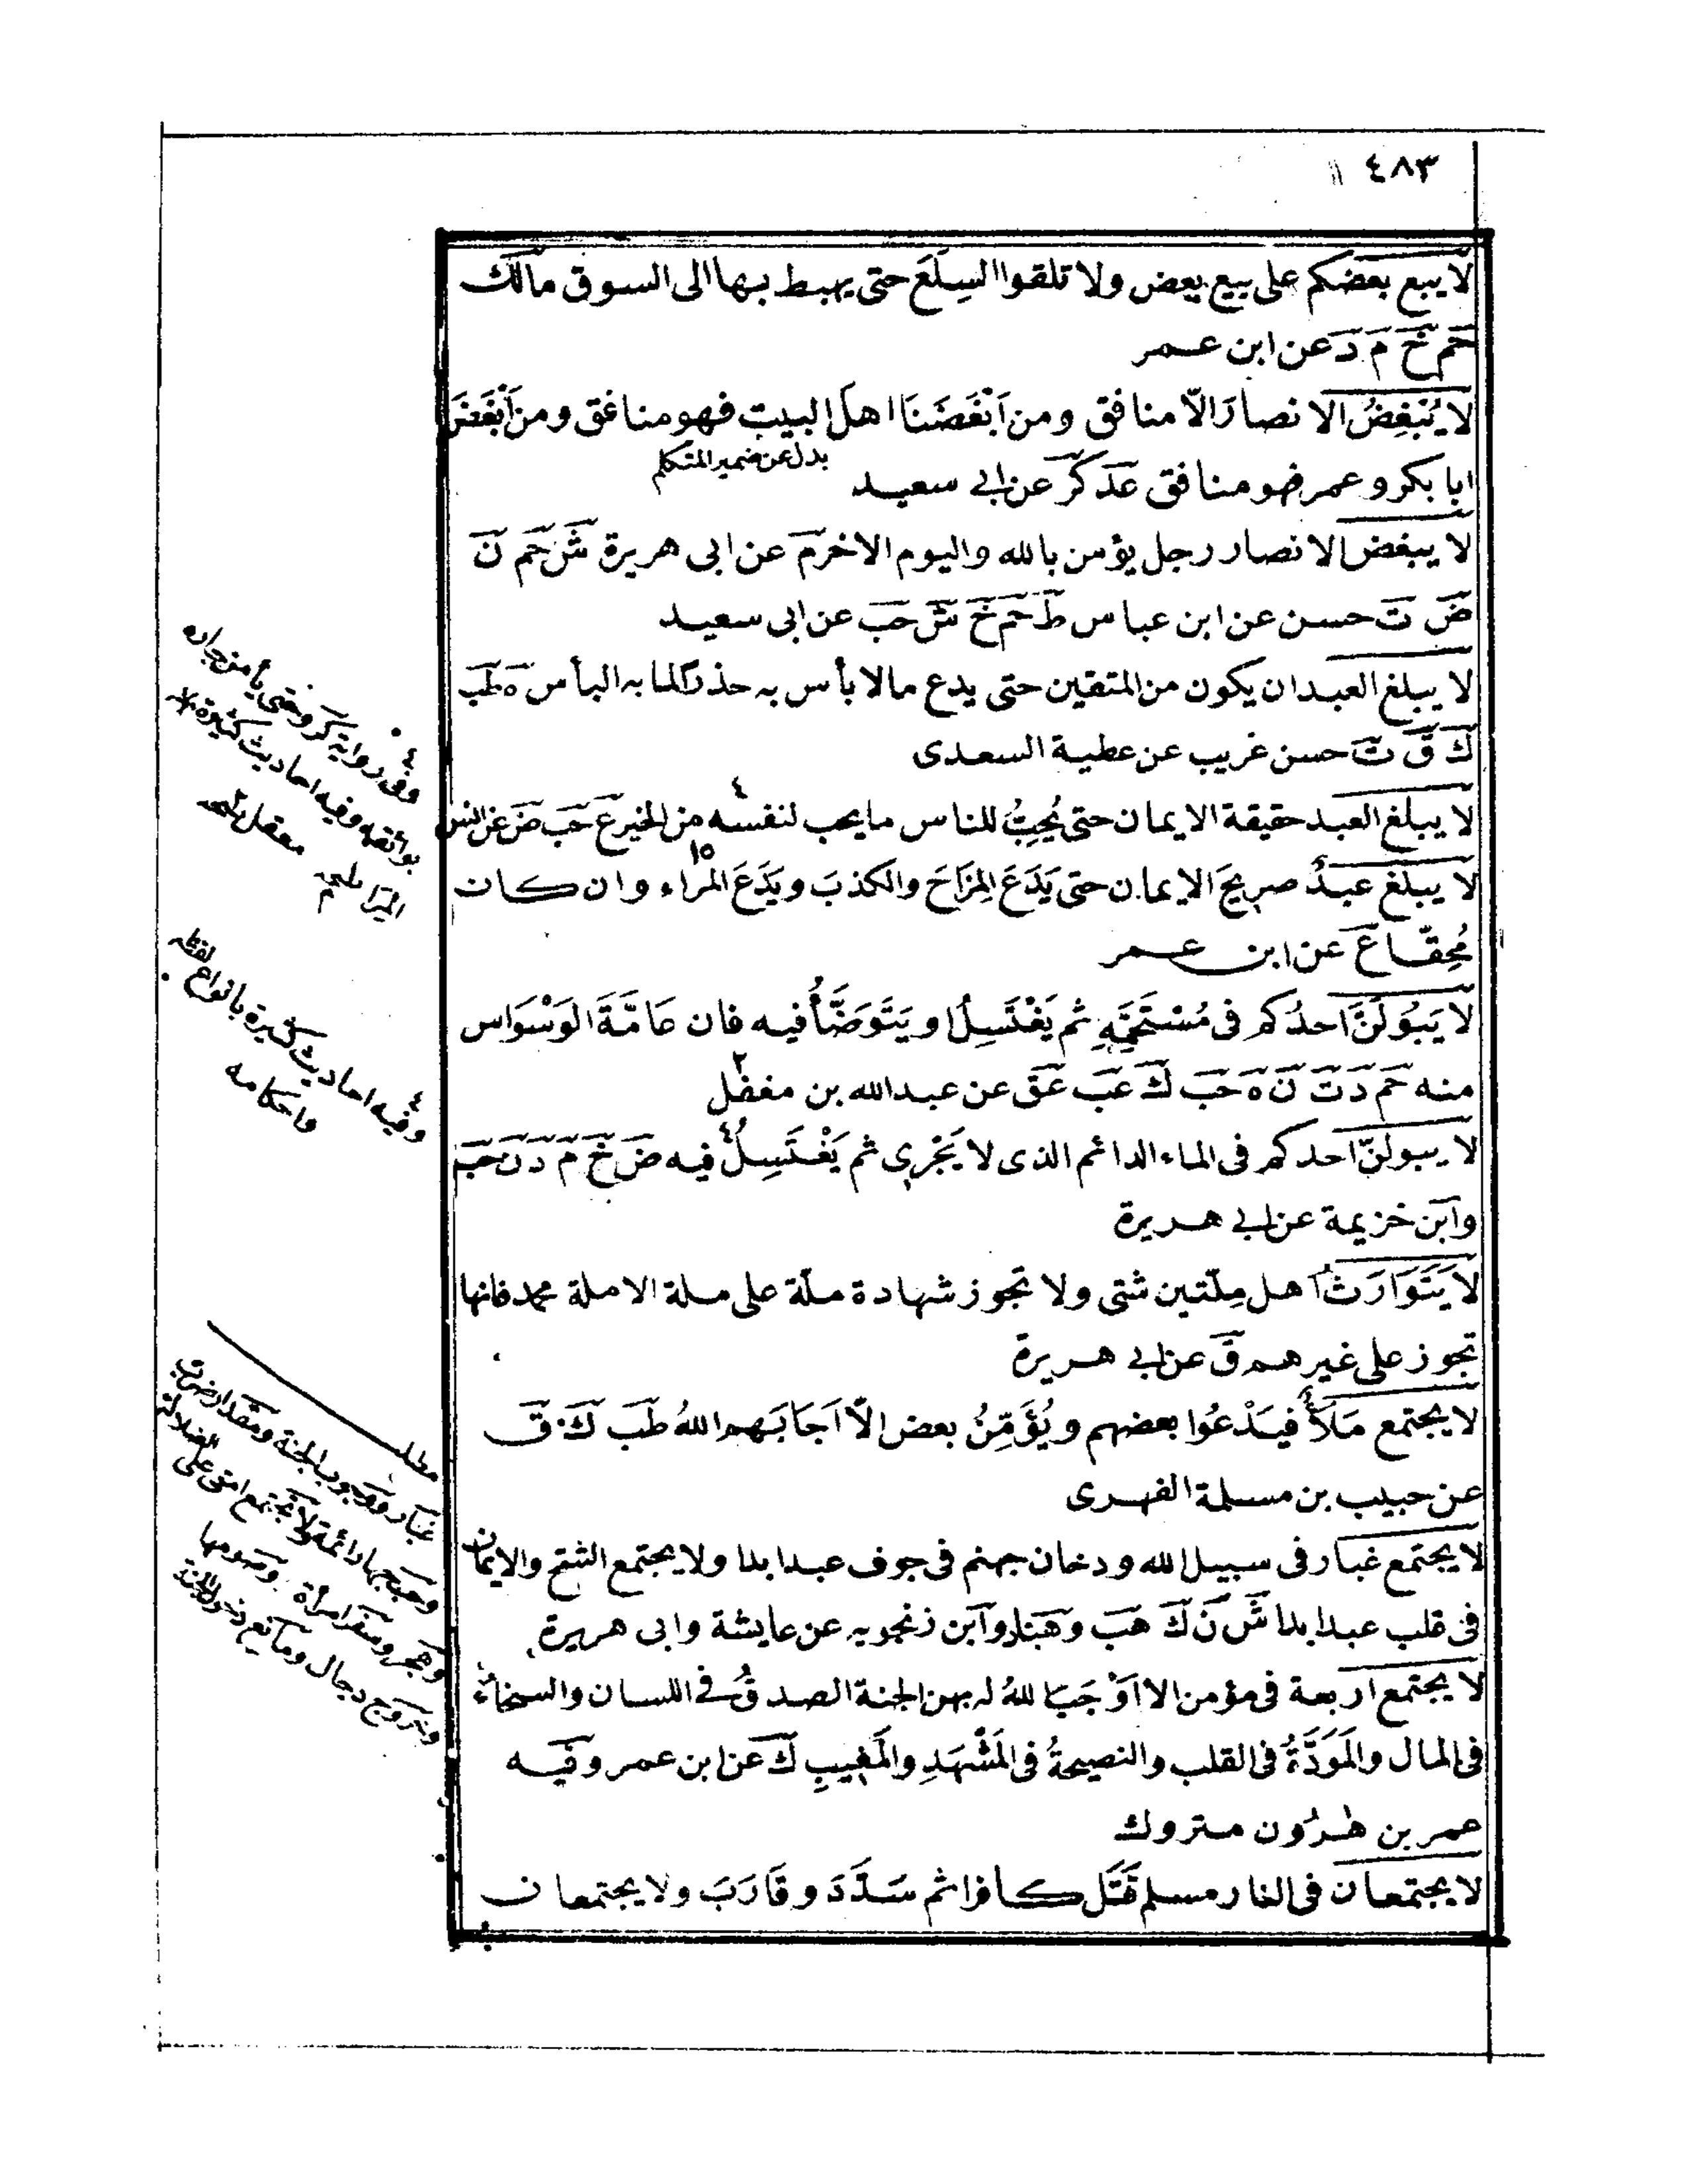 ٤٨٣
لا يبع بعضكم على بيع بعض ولا تلقوا السِلَعَ حتى يهبط بها الى السوق مالك
حم خ م د عن ابن عمر
لا يُبْغِضُ الانصارَ الّا منافق ومن اَبْغَضَنَا اهل البيت فهو منافق ومن اَبْغَضَ
بدل عن ضمير المتكلم
ابا بكر وعمر فهو منافق عد كر عن ابى سعيد
لا يبغض الانصار رجل يؤمن بالله واليوم الاخر م عن ابى هريرة ش حم ن
ض ت حسن عن ابن عباس ط حم خ ش حب عن ابى سعيد
لا يبلغ العبد ان يكون من المتقين حتى يدع مالا بأس به حذرًا لما به البأس ه طب
ك ق ت حسن غريب عن عطية السعدى
لا يبلغ العبد حقيقة الايمان حتى يُحِبُّ للناس ما يحب لنفسه ٤ من الخير ع حب ض عن انس
لا يبلغ عبدٌ صريحَ الايمان حتى يَدَعَ المِزَاحَ والكذبَ ويَدَعَ المرَاء ١٥ وان كان
مُحِقّا ع عن ابن عمر
لا يَبُولَنَّ احدُكم فى مُسْتَحَمِّهِ ثم يَغْتَسِلُ ا ويَتَوَضَّأُ فيه فان عَامَّةَ الوَسْوَاس
منه حم د ت ن ه حب ك عب عق عن عبد الله بن مغفل ٢
لا يبولنّ احدكم فى الماء الدائم الذى لا يَجْرِى ثم يَغْتَسِلُ ٤ فيه ض خ م د ن حب
وابن خزيمة عن ابى هريرة
لا يَتَوَارَثُ اهل مِلّتين شتى ولا تجوز شهادة ملّة على ملة الا ملة محمد فانها
تجوز على غيرهم ق عن ابى هريرة
لا يجتمع مَلَأٌ فيَدْعُوا بعضهم ويُؤَمِّنُ بعض الّا اَجَابَهم اللهُ طب ك ق
عن حبيب بن مسلمة الفهرى
لا يجتمع غبار فى سبيل الله ودخان جهنم فى جوف عبد ابدا ولا يجتمع الشح والايمان
فى قلب عبد ابدا ش ن ك هب وهناد وابن زنجويه عن عايشة وابى هريرة
لا يجتمع اربعة فى مؤمن الا اَوْجَبَ اللهُ له بهن الجنة الصدقُ فى اللسان والسخاءُ
فى المال والمَوَدَّةُ فى القلب والنصيحةُ فى المَشْهَدِ والمَغِيبِ ك عن ابن عمر وفيه
عمر بن هٰرُون متروك
لا يجتمعان فى النار مسلم قَتَل كافرا ثم سَدَّدَ وقَارَبَ ولا يجتمعان
٤ وفى رواية كر وحتى يأمن جاره
بوائقه وفيه احاديث كثيرة
معقل نسخه
المِرَا نسخه م
٤ وفيه احاديث كثيرة بانواع لفظه
واحكامه
مطلب
غبار ووجوب الجنة ومقدار ضرب
وحبب جهاد ائمة ولا تجتمع امتى على الضلالة
وهجر وسفر امرأة وصومها
وخروج دجال ومانع دخول الجنة